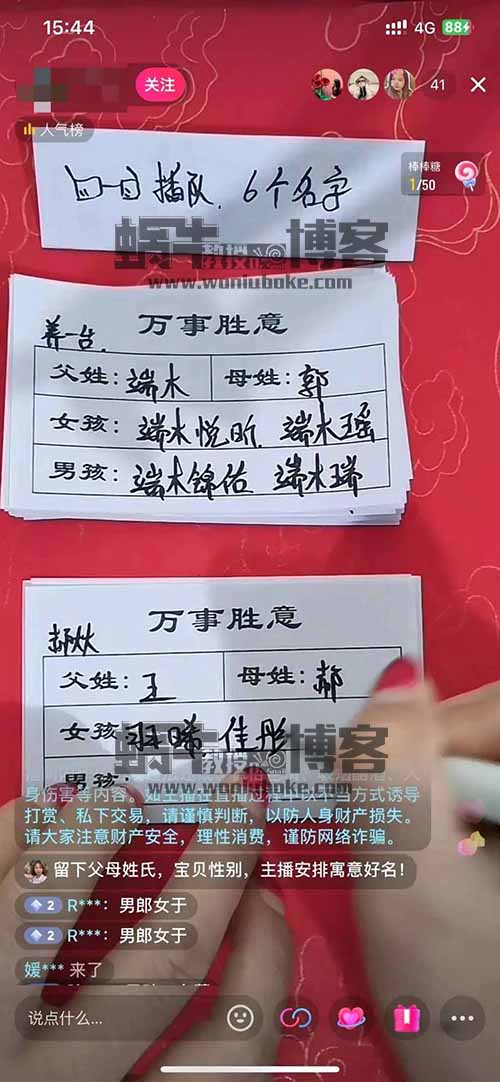 15:44
4G 88
关注
41
人气榜
棒棒糖
1/50
插队, 6个名字
蜗牛教授博客
www.woniuboke.com
万事胜意
父姓: 端木 母姓: 郭
女孩: 端木悦昕 端木瑶
男孩: 端木锦佑 端木瑞
万事胜意
父姓: 王 母姓: 郝
女孩 羽晞 佳彤
男孩:
蜗牛教授博客
www.woniuboke.com
身伤害等内容。如主播在直播过程中以不当方式诱导
打赏、私下交易，请谨慎判断，以防人身财产损失。
请大家注意财产安全，理性消费，谨防网络诈骗。
留下父母姓氏，宝贝性别，主播安排寓意好名！
2 R***：男郎女于
2 R***：男郎女于
媛*** 来了
说点什么...